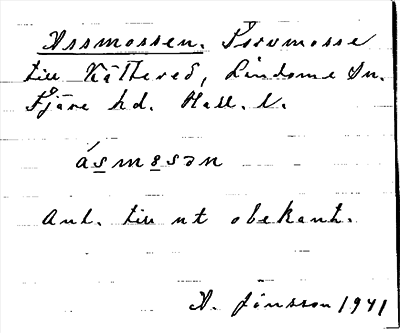 Assmossen. Torvmosse
till Kållered, Lindome sn.
Fjäre hd. Hall. l.
ásmosən
Anl. till nt obekant.
A. Jönsson 1941